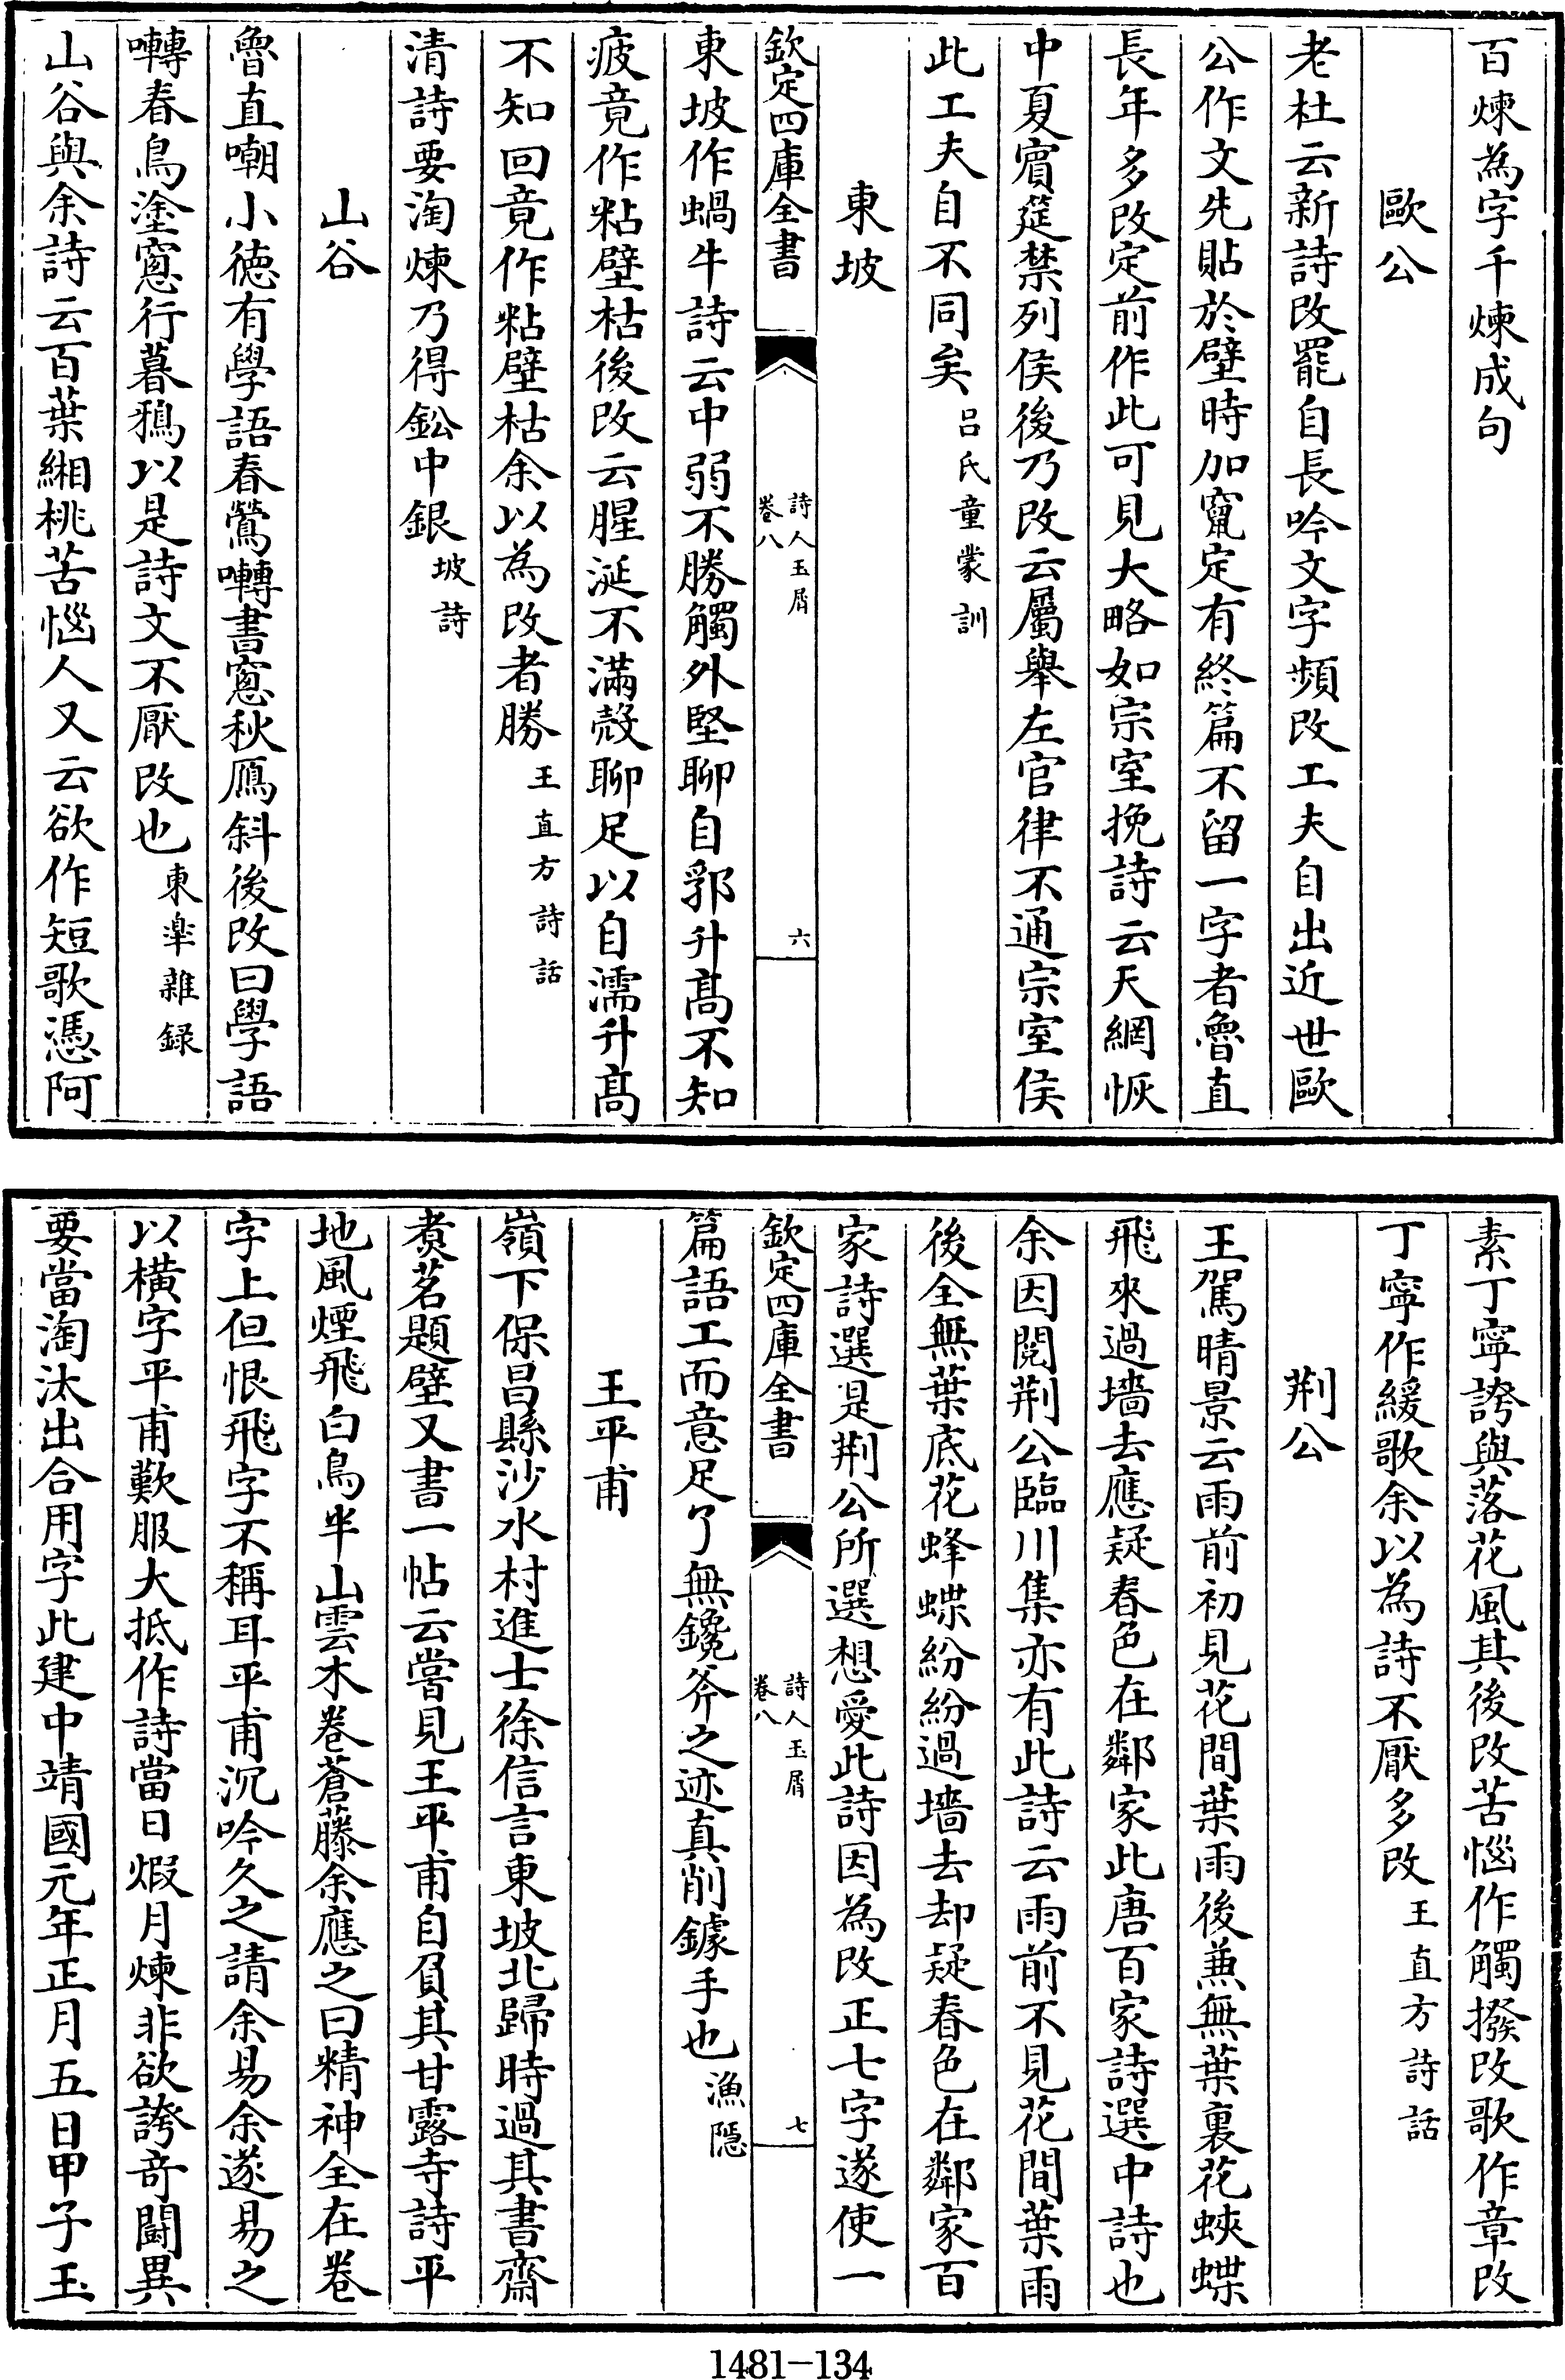 百煉為字千煉成句
歐公
老杜云新詩改罷自長吟文字頻改工夫自出近世歐
公作文先貼於壁時加竄定有終篇不留一字者魯直
長年多改定前作此可見大略如宗室挽詩云天網恢
中夏賓筵禁列侯後乃改云屬舉左官律不通宗室侯
此工夫自不同矣呂氏童蒙訓
東坡
欽定四庫全書
詩人玉屑
卷八
六
東坡作蝸牛詩云中弱不勝觸外堅聊自郛升髙不知
疲竟作粘壁枯後改云腥涎不滿殻聊足以自濡升髙
不知回竟作粘壁枯余以為改者勝王直方詩話
清詩要淘煉乃得鈆中銀坡詩
山谷
魯直嘲小徳有學語春鶯囀書窻秋鴈斜後改曰學語
囀春鳥塗窻行暮鴉以是詩文不厭改也東臯雜録
山谷與余詩云百葉緗桃苦惱人又云欲作短歌憑阿
素丁寧誇與落花風其後改苦惱作觸撥改歌作章改
丁寧作緩歌余以為詩不厭多改王直方詩話
荆公
王駕晴景云雨前初見花間葉雨後兼無葉裏花蛺蝶
飛來過墻去應疑春色在鄰家此唐百家詩選中詩也
余因閱荆公臨川集亦有此詩云雨前不見花間葉雨
後全無葉底花蜂蝶紛紛過墻去却疑春色在鄰家百
家詩選是荆公所選想愛此詩因為改正七字遂使一
欽定四庫全書
詩人玉屑
卷八
七
篇語工而意足了無鑱斧之迹真削鐻手也漁隠
王平甫
嶺下保昌縣沙水村進士徐信言東坡北歸時過其書齋
煑茗題壁又書一帖云嘗見王平甫自負其甘露寺詩平
地風煙飛白鳥半山雲木卷蒼藤余應之曰精神全在卷
字上但恨飛字不稱耳平甫沉吟久之請余易余遂易之
以橫字平甫歎服大抵作詩當日煆月煉非欲誇竒鬬異
要當淘汰出合用字此建中靖國元年正月五日甲子玉
1481-134